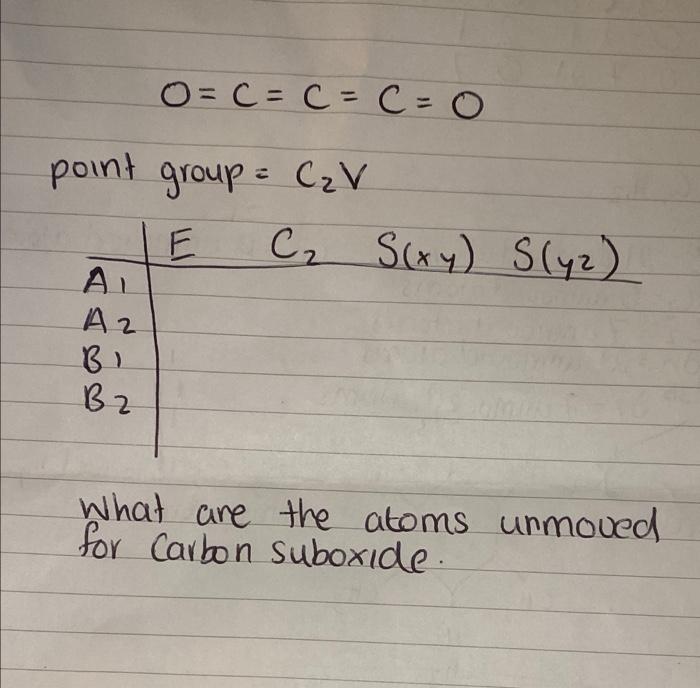 O = C = C = C = O
point group = C₂V
E C₂ S(xy) S(yz)
A1
A2
B1
B2
What are the atoms unmoved
for Carbon suboxide.